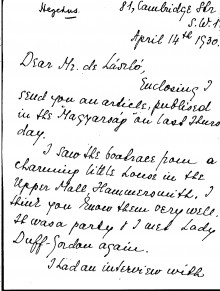 Hegedus.
81, Cambridge Str.
S.W.1.
April 14th 1930.
Dear Mr. de László,
Enclosing I
send you an article, published
in the "Magyarság" on last Thurs
day.
I saw the boatrace from a
charming little house in the
Upper Mall, Hammersmith, I
think you know them very well.
It was a party & I met Lady
Duff-Gordon again.
I had an interview with